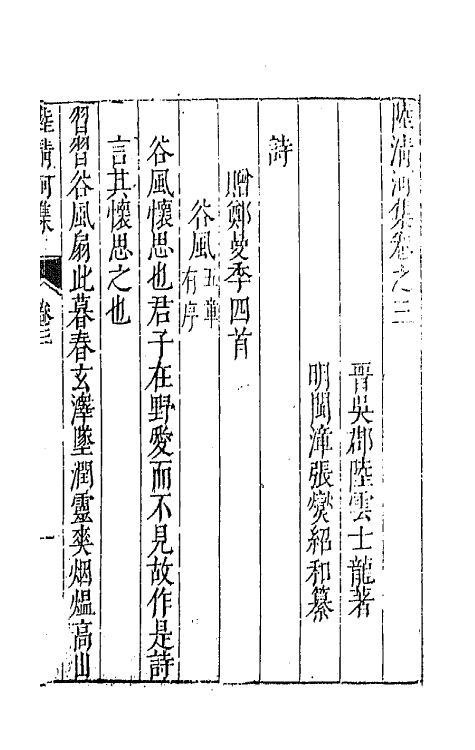 陸清河集卷之三
晉吳郡陸雲士龍著
明閩漳張燮紹和纂
詩
贈鄭曼季四首
谷風五章有序
谷風懷思也君子在野愛而不見故作是詩
言其懷思之也
習習谷風扇此暮春玄澤墜潤靈爽烟熅高山
陸清河集 卷三 一